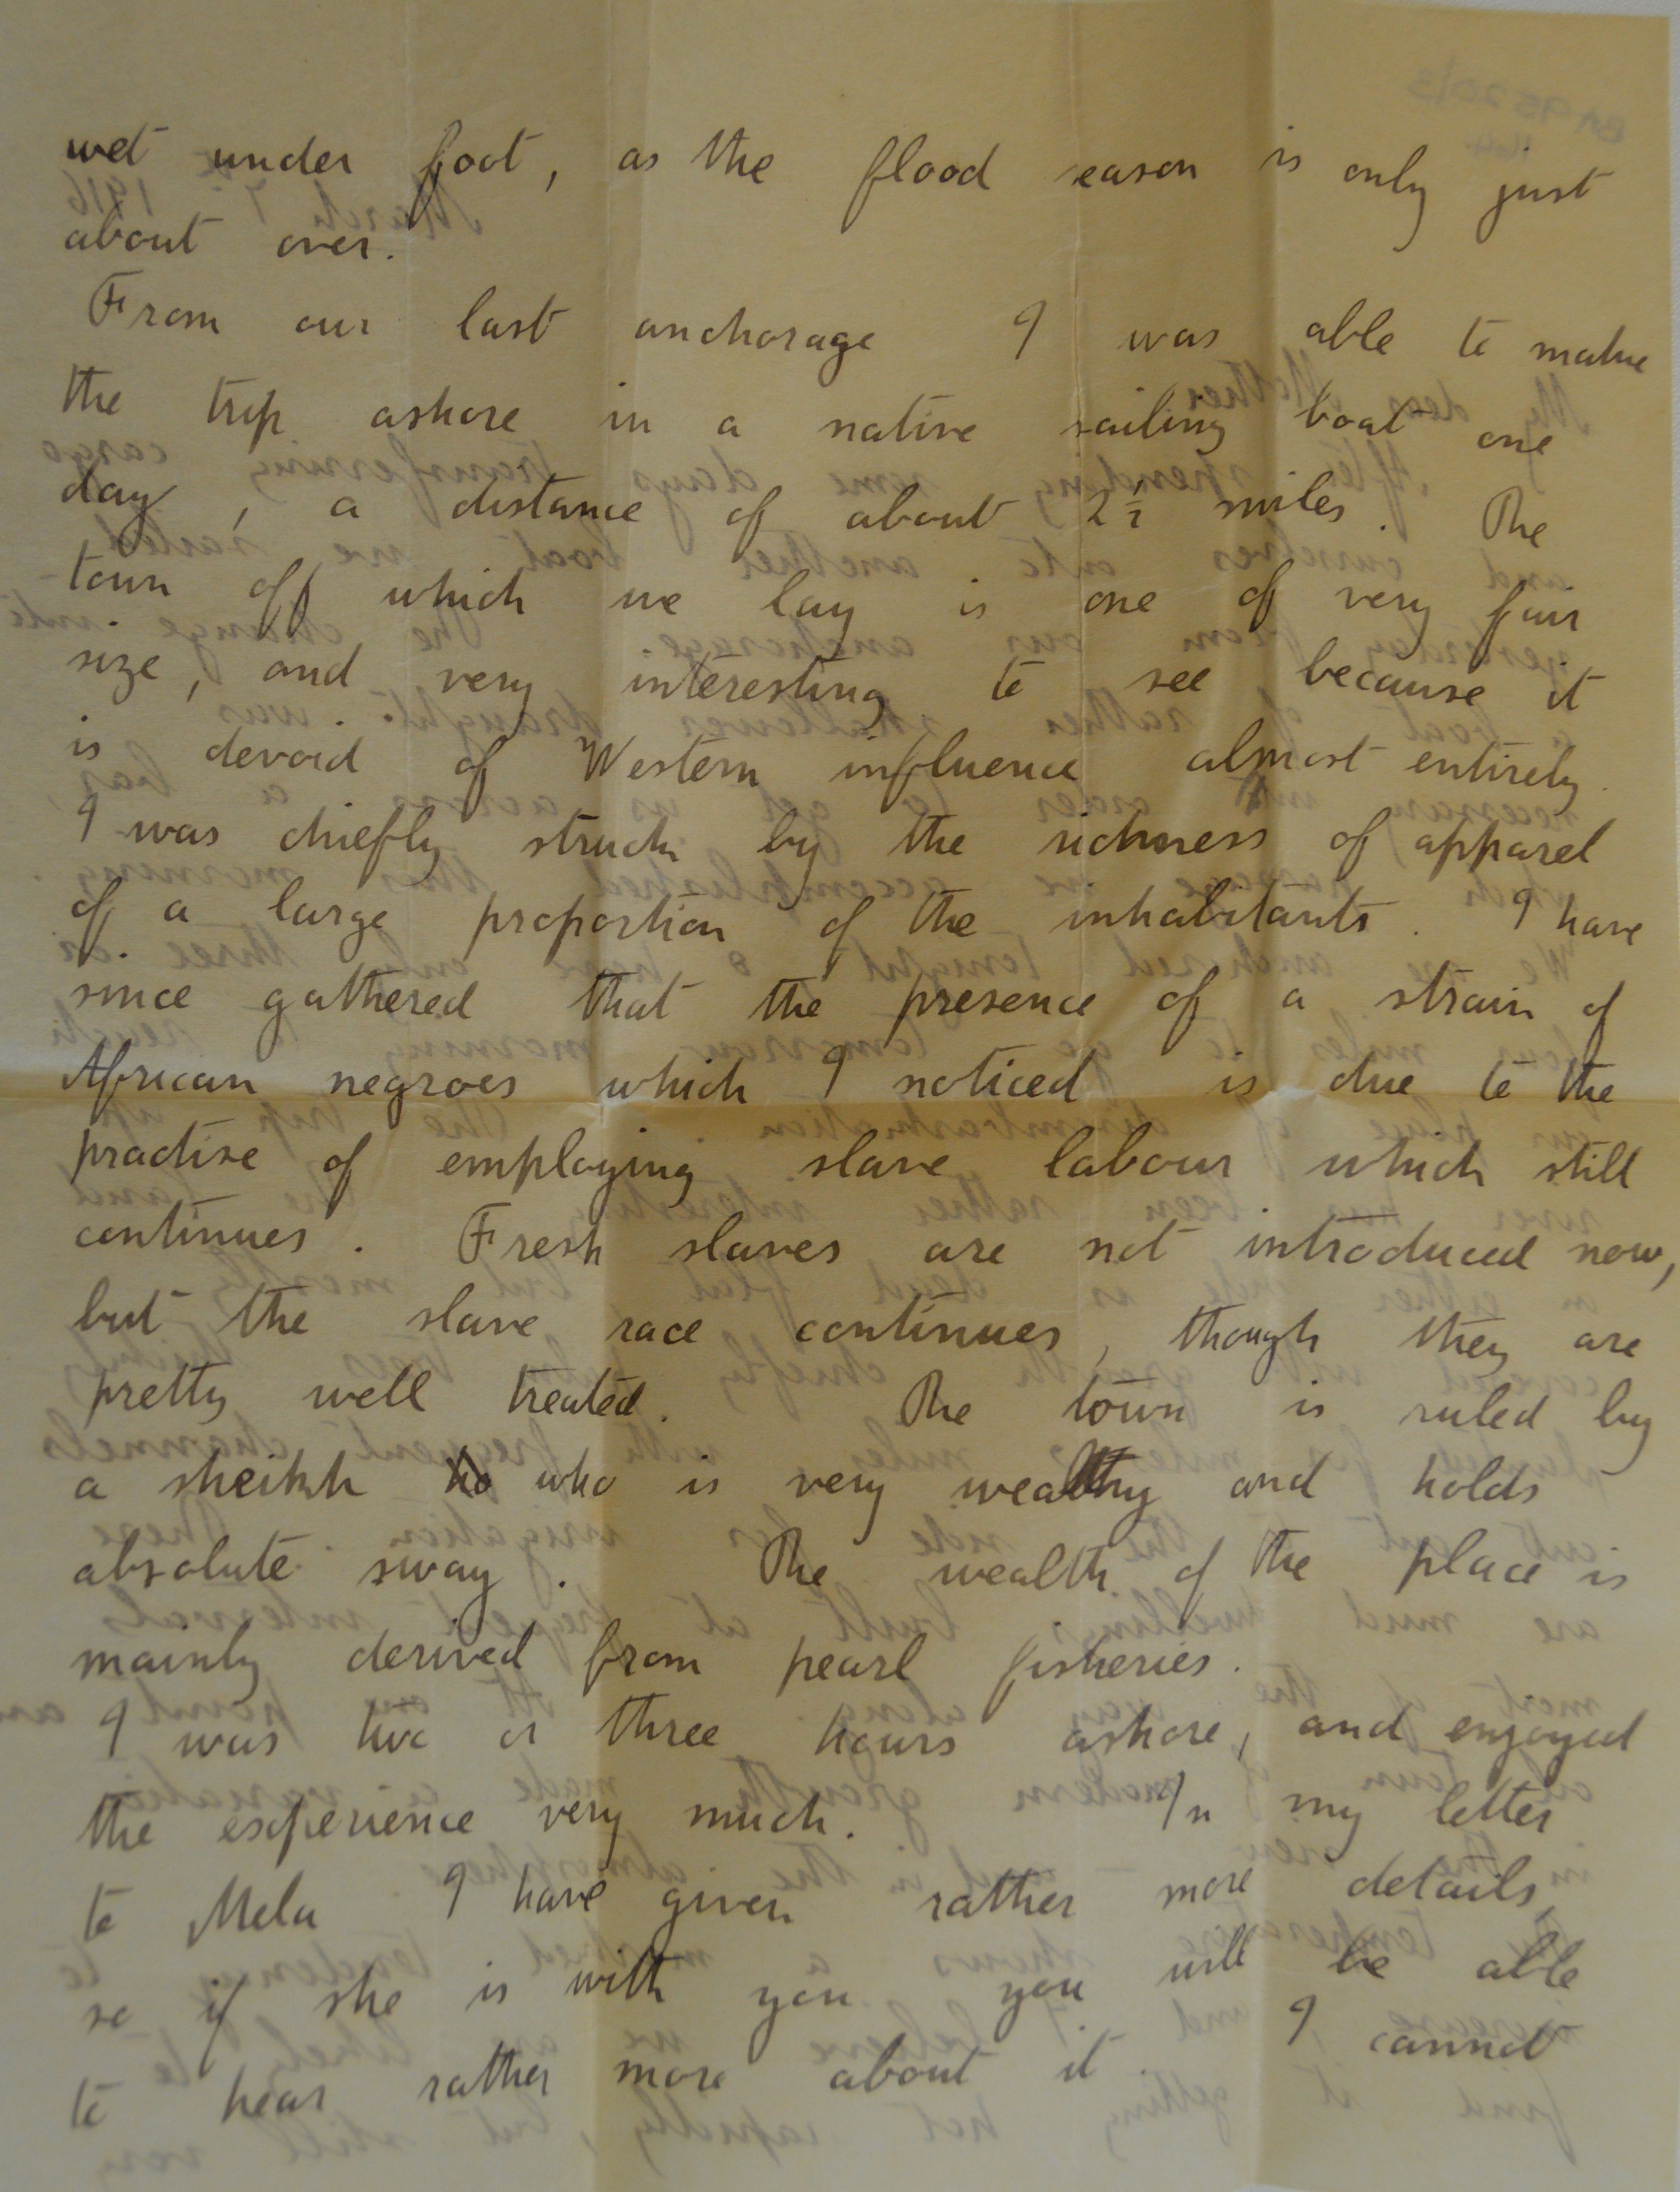 wet under foot, as the flood season is only just
about over.
From our last anchorage I was able to make
the trip ashore in a native sailing boat one
day, a distance of about 2½ miles. The
town off which we lay is one of very fair
size, and very interesting to see because it
is devoid of Western influence almost entirely.
I was chiefly struck by the richness of apparel
of a large proportion of the inhabitants. I have
since gathered that the presence of a strain of
African negroes which I noticed is due to the
practise of employing slave labour which still
continues. Fresh slaves are not introduced now,
but the slave race continues, though they are
pretty well treated. The town is ruled by
a sheikh who is very wealthy and holds
absolute sway. The wealth of the place is
mainly derived from pearl fisheries.
I was two or three hours ashore, and enjoyed
the experience very much. In my letter
to Mela I have given rather more details,
so if she is with you you will be able
to hear rather more about it. I cannot